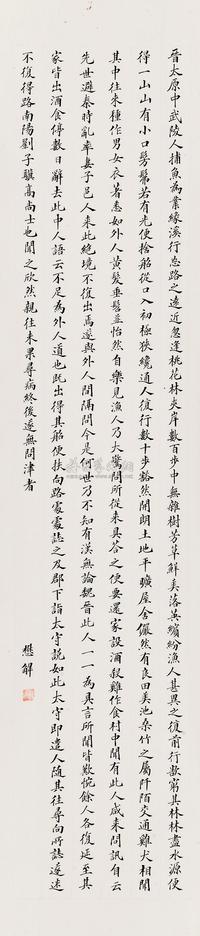 晉太原中武陵人捕魚為業緣溪行忘路之遠近忽逢桃花林夾岸數百步中無雜樹芳草鮮美落英繽紛漁人甚異之復前行欲窮其林林盡水源便
得一山山有小口髣髴若有光便捨船從口入初極狹纔通人復行數十步豁然開朗土地平曠屋舍儼然有良田美池桑竹之屬阡陌交通雞犬相聞
其中往來種作男女衣著悉如外人黃髮垂髫並怡然自樂見漁人乃大驚問所從來具答之便要還家設酒殺雞作食村中聞有此人咸來問訊自云
先世避秦時亂率妻子邑人來此絕境不復出焉遂與外人間隔問今是何世乃不知有漢無論魏晉此人一一為具言所聞皆歎惋餘人各復延至其
家皆出酒食停數日辭去此中人語云不足為外人道也既出得其船便扶向路處處誌之及郡下詣太守說如此太守即遣人隨其往尋向所誌遂迷
不復得路南陽劉子驥高尚士也聞之欣然親往未果尋病終後遂無問津者
懋